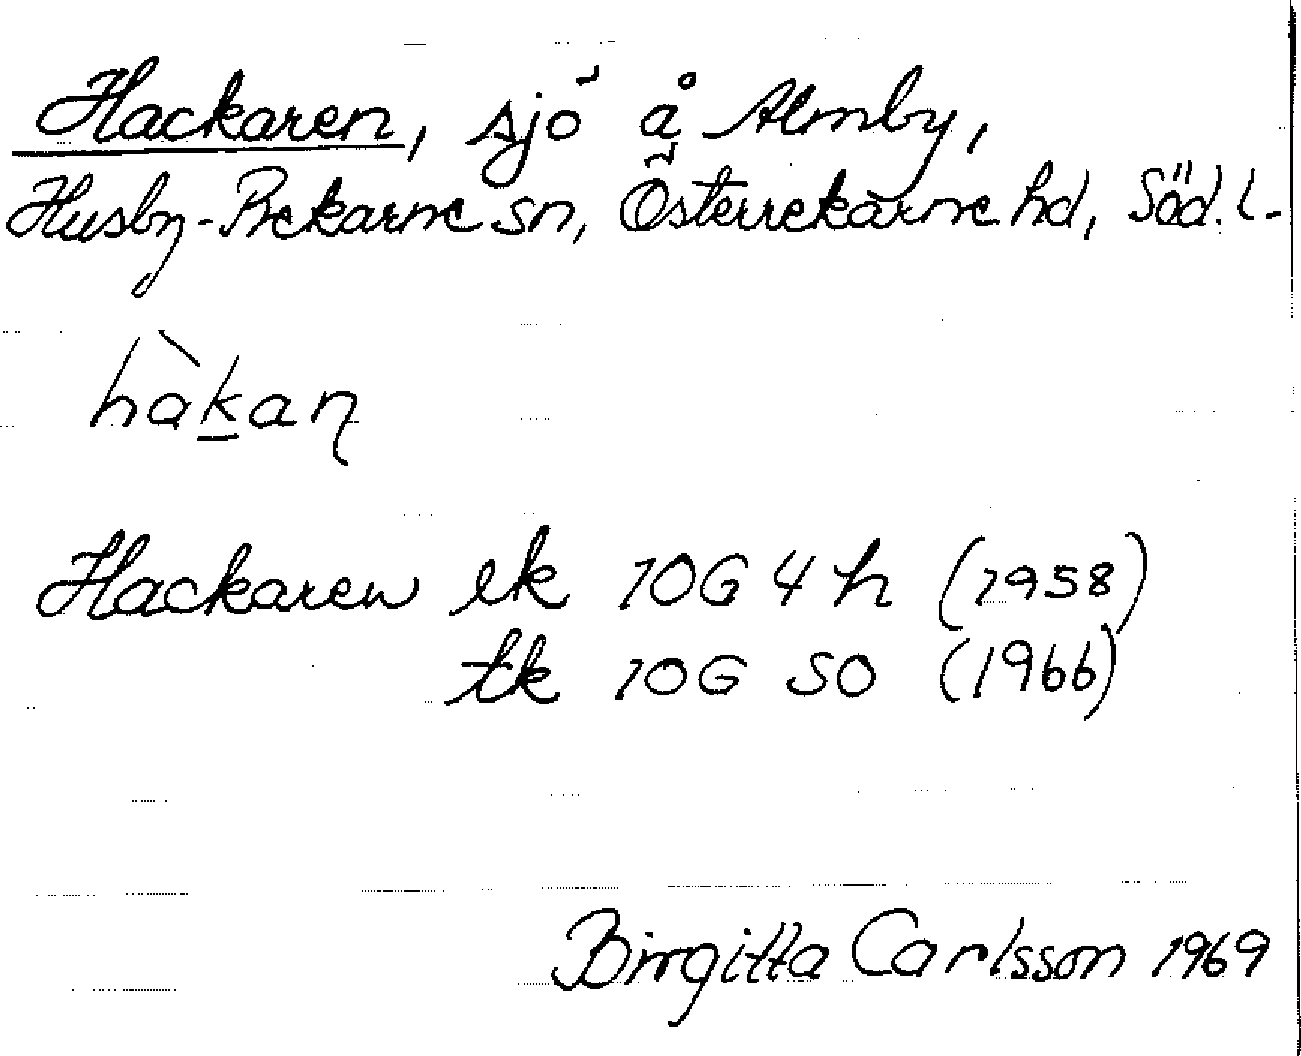 Hackaren, sjö å Almby,
Husby-Rekarne sn, Österrekarne hd, Söd. l.
hàk̲aɳ
Hackaren ek 10G 4h (1958)
tk 10G SO (1966)
Birgitta Carlsson 1969